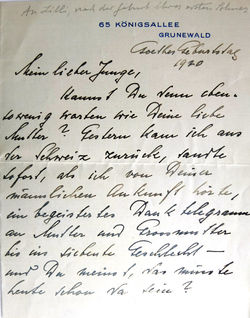 An Lilli, nach der Geburt ihres ersten Sohnes
65 KÖNIGSALLEE
GRUNEWALD
Goethes Geburtstag
1920
Mein lieber Junge,
Kannst Du denn eben-
sowenig warten wie Deine liebe
Mutter? Gestern kam ich aus
der Schweiz zurück, sandte
sofort, als ich von Deiner
männlichen Ankunft hörte,
ein begeistertes Danktelegramm
an Mutter und Grossmutter
bis ins siebente Geschlecht —
und Du meinst, das müsste
heute schon da sein?